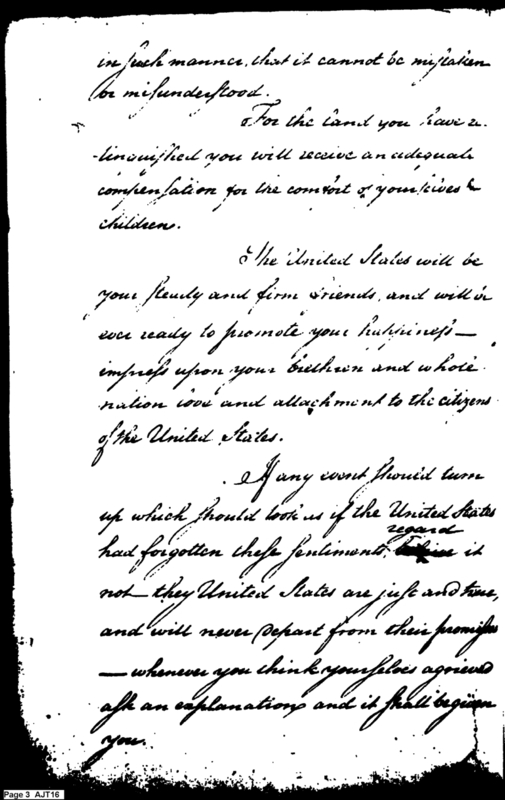 in such manner, that it cannot be mistaken
or misunderstood.
For the land you have re-
-linquished you will receive an adequate
compensation for the comfort of your wives &
children.
The United States will be
your steady and firm friends, and will be
ever ready to promote your happiness—
impress upon your brethren and whole
nation love and attachment to the citizens
of the United States.
If any event should turn
up which should look as if the United States
regard
had forgotten these sentiments, it
not— they United States are just and true,
and will never depart from their promises
— whenever you think yourselves agrieved
ask an explanation and it shall be given
you.
Page 3 AJT16